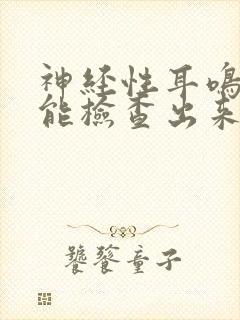 神経性耳鳴
能檢查出来
饕餮童子